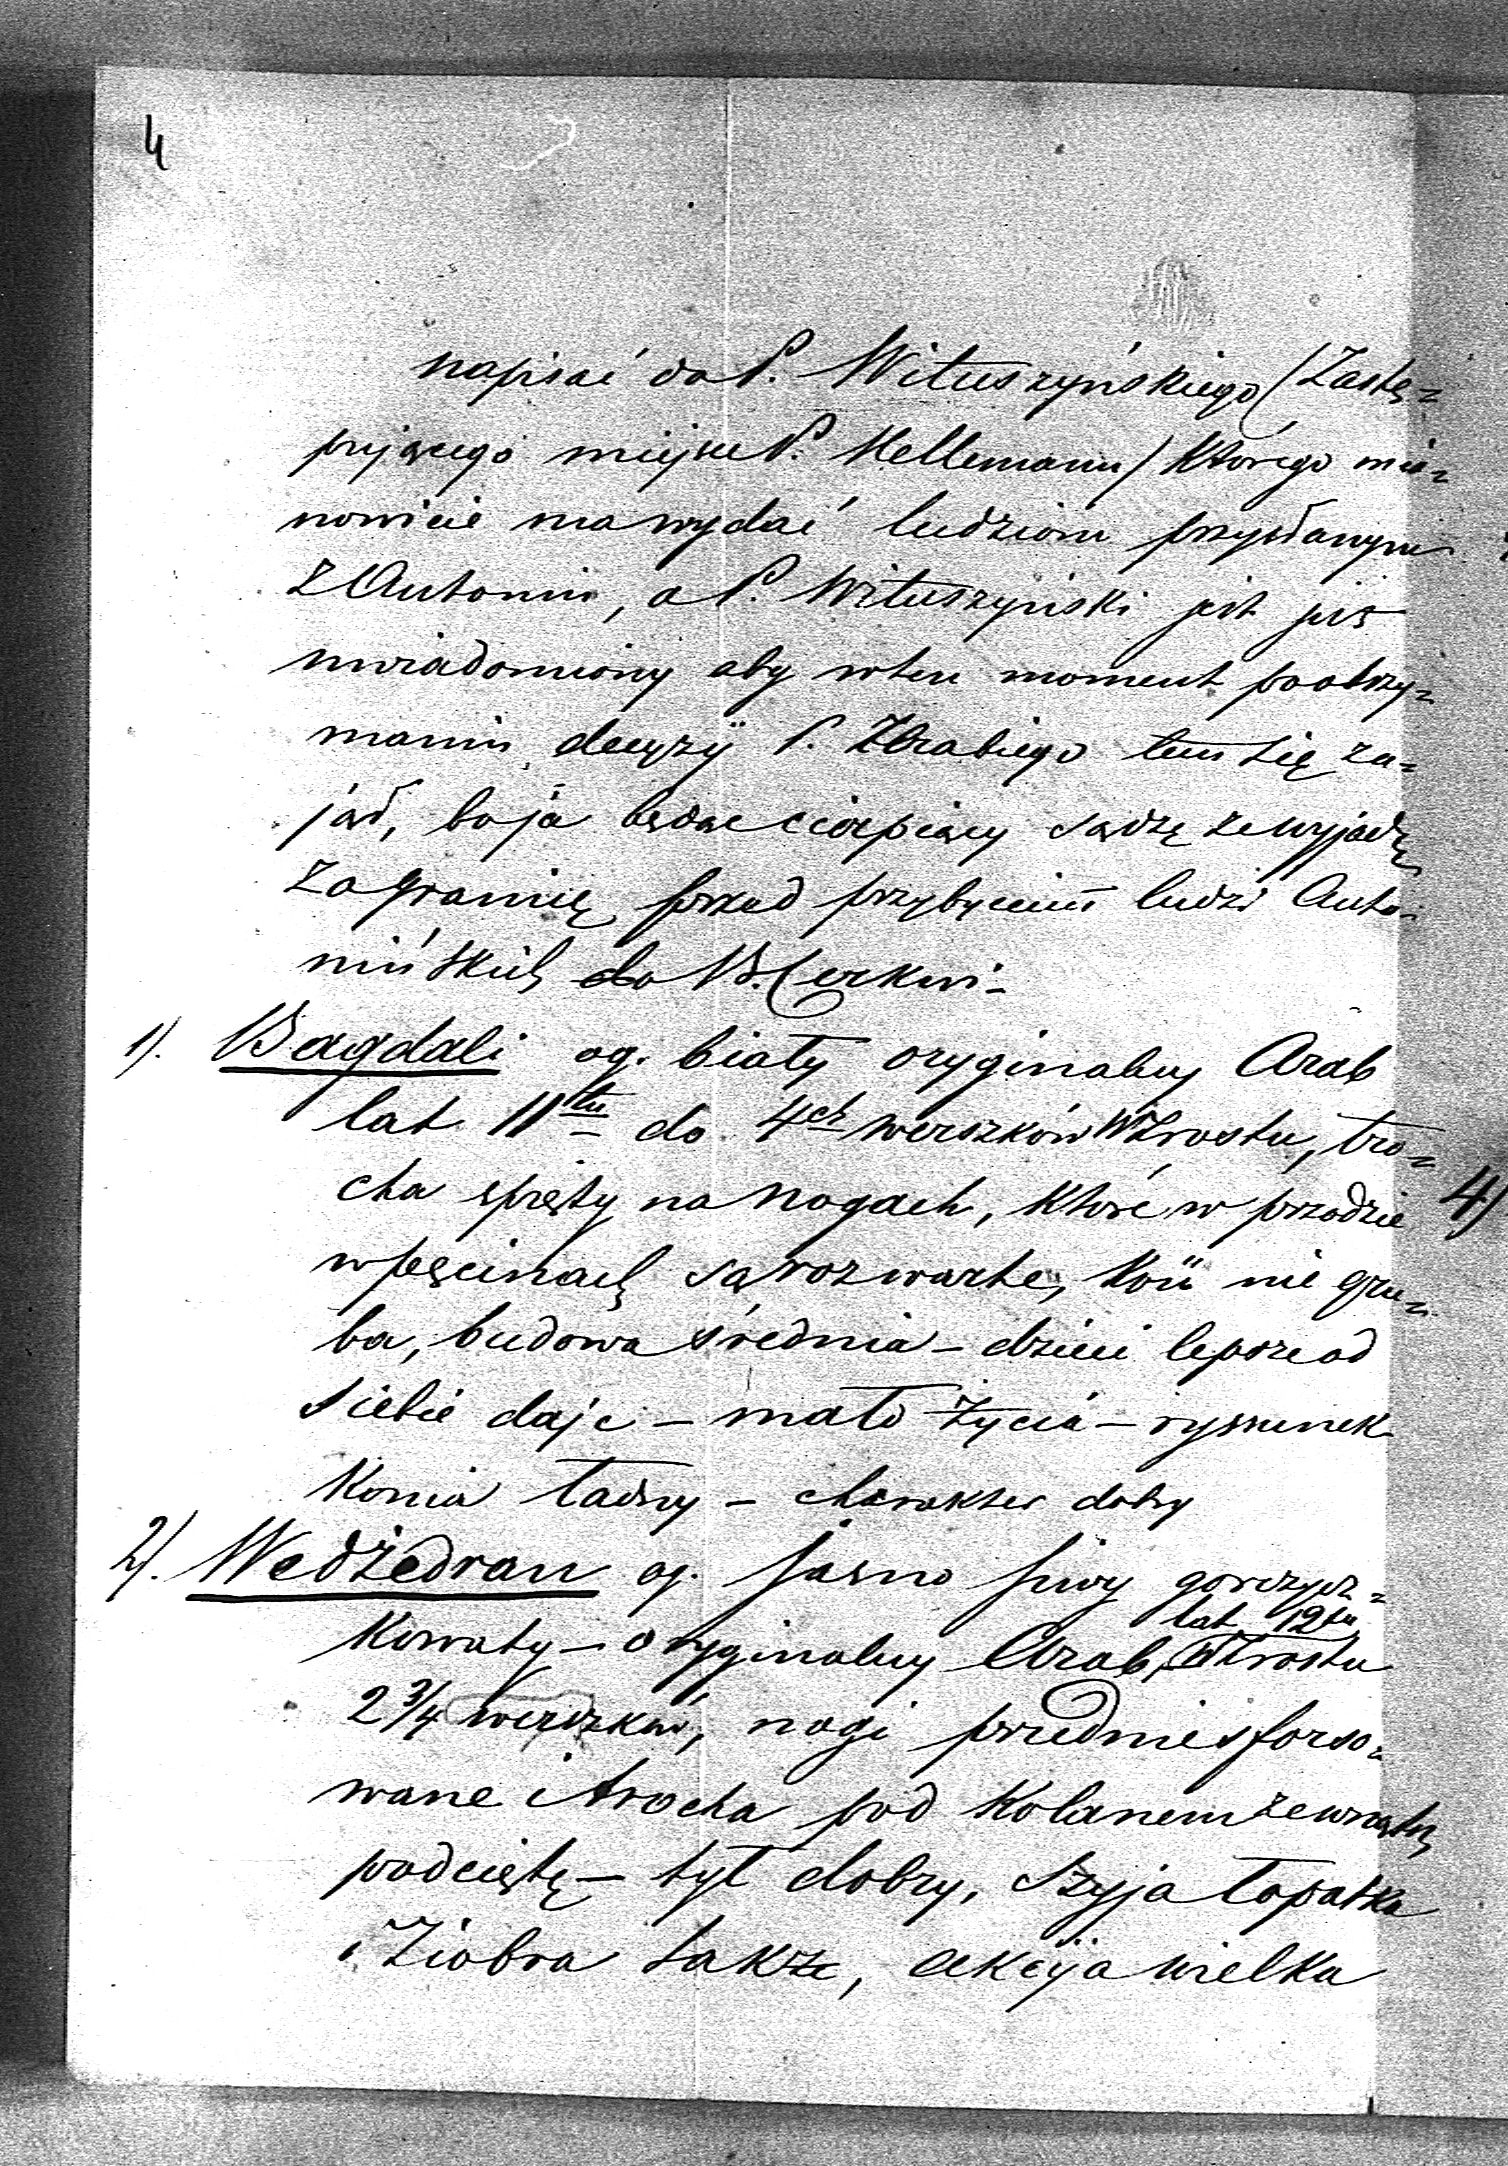 4
napisać do P. Wituszyńskiego (Zastę=
pującego miejsce P. Hellemann) którego mia=
nowicie ma wydać ludziom przysłanym
z Antonin, a P. Wituszyński jest już
uwiadomiony aby w ten moment po otrzy=
maniu decyzyi P. Hrabiego tem się za=
jął, bo ja będąc cierpiący sądzę że wyjadę
za granicę przed przybyciem ludzi Anto-
nińskich do B. Cerkwi -
1). Bagdali og. biały oryginalny Arab
lat 11tu do 4ch werszków Wzrostu, tro=
cha spięty na nogach, które w przodzie
w pęcinach są rozwarte, kość nie gru=
ba, budowa średnia - dzieci lepsze od
siebie daje - mało życia - rysunek
konia ładny - charakter dobry
4)
2). Wedżedran og. jasno siwy gorczycz=
kowaty - oryginalny Arab, lat 12tu Wzrostu
2 3/4 werszków, nogi przednie sforso=
wane i trocha pod kolanem zewnątrz
podcięte - tył dobry, szyja łopatka
i Ziobra także, akcyja wielka